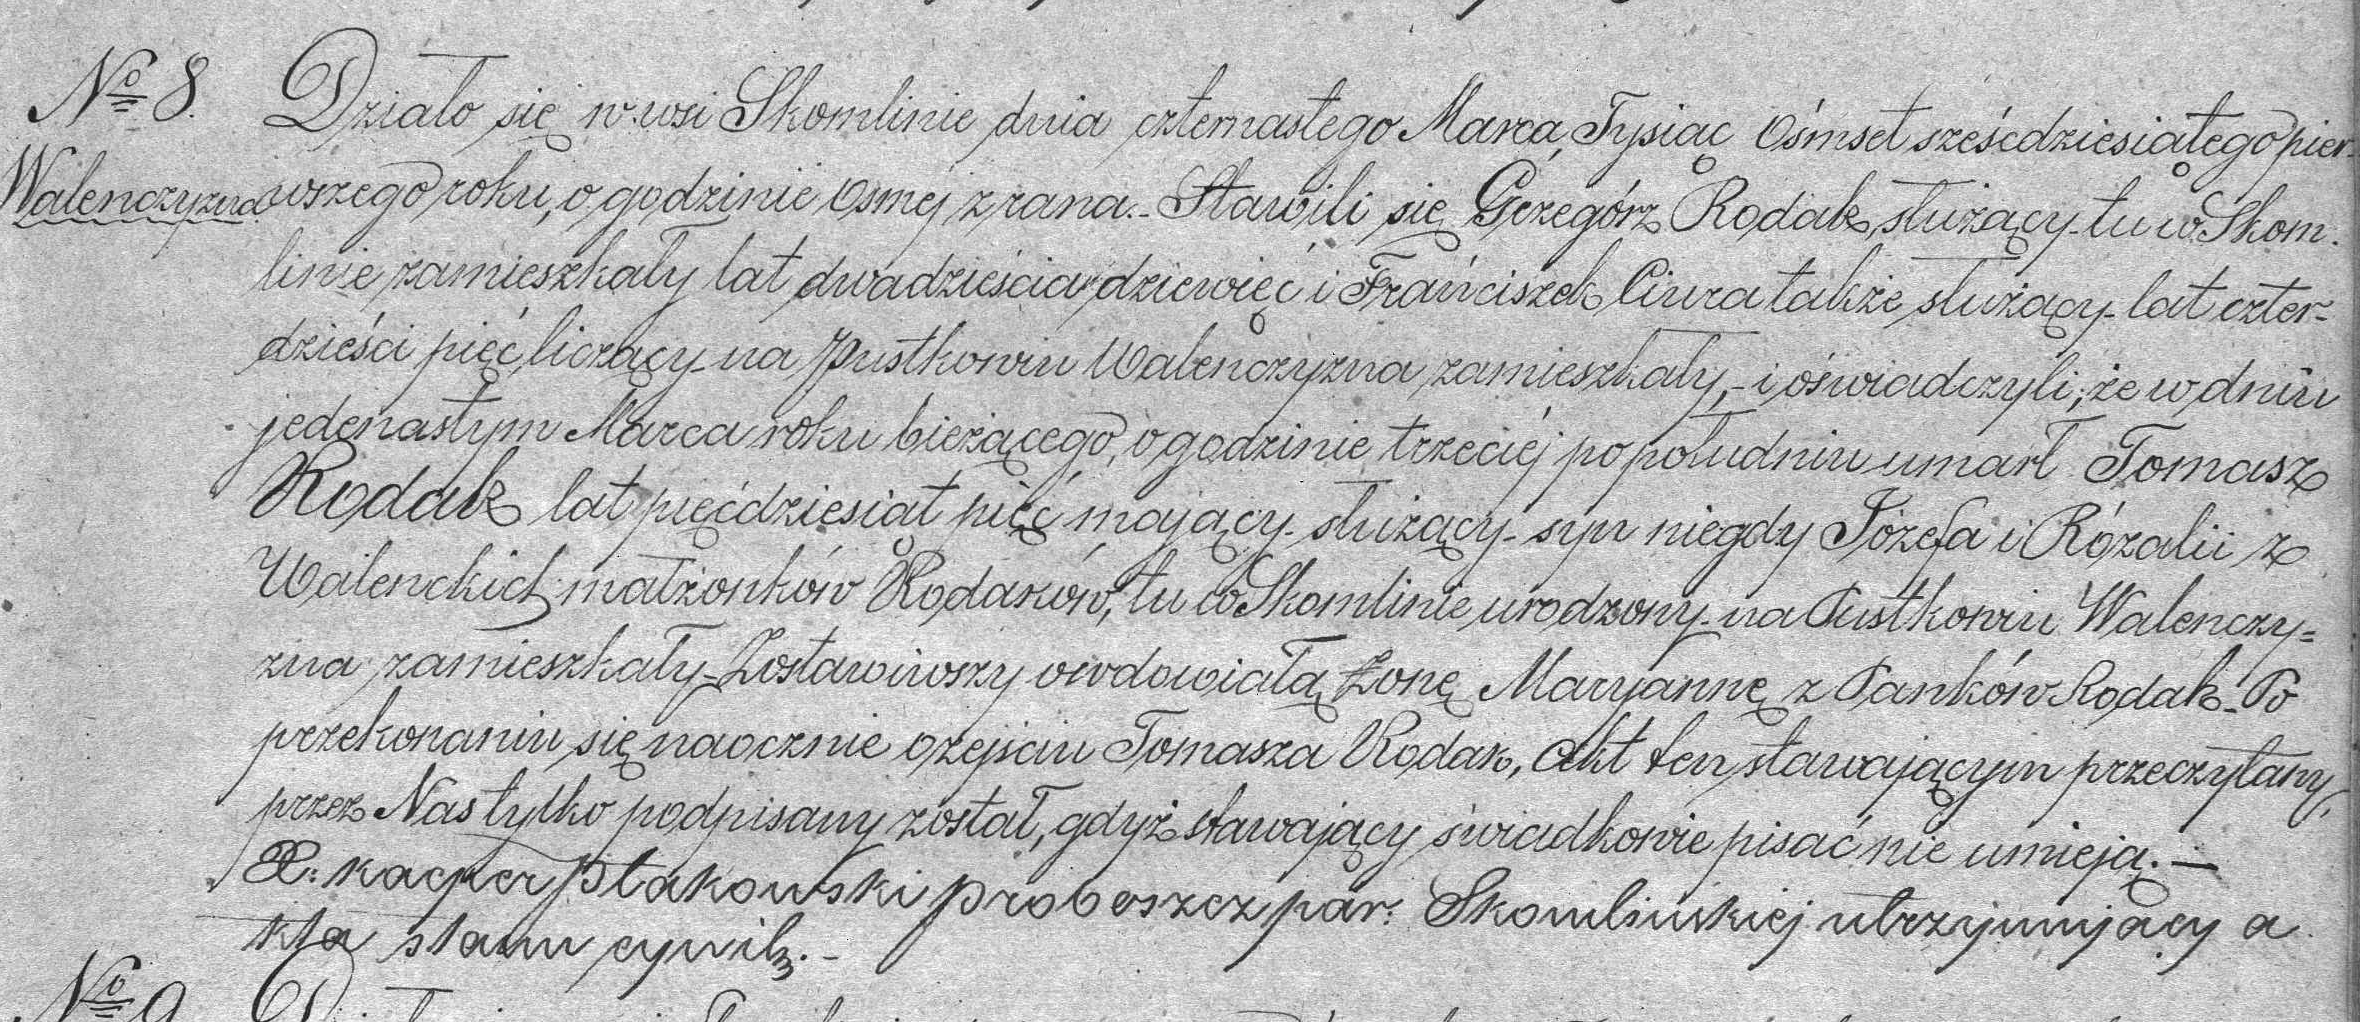 № 8. Działo się w wsi Skomlinie dnia czternastego Marca, Tysiąc Ośmset sześćdziesiątego pier-
Walenczyzna wszego roku, o godzinie osmej z rana.- Stawili się Grzegórz Rodak, służący tu w Skom-
linie zamieszkały lat dwadzieścia dziewięć i Frańciszek Ciura także służący lat czter-
dzieści pięć liczący na Pustkowiu Walenczyzna zamieszkały,- i oświadczyli, że w dniu
jedenastym Marca roku bieżącego, o godzinie trzeciej po południu umarł Tomasz
Rodak lat pięćdziesiąt pięć mający służący syn niegdy Józefa i Rózalii z
Walenckich małżonków Rodaków, tu w Skomlinie urodzony na Pustkowiu Walenczy=
zna zamieszkały- Zostawiwszy owdowiałą żonę Maryannę z Panków Rodak- Po
przekonaniu się naocznie o zejściu Tomasza Rodak, Akt ten stawającym przeczytany,
przez Nas tylko podpisany został, gdyż stawający świadkowie pisać nie umieją.—
X. Kacper Ptakowski proboszcz par: Skomlinskiej utrzymujący a
kta stanu cywil.-
№ 9